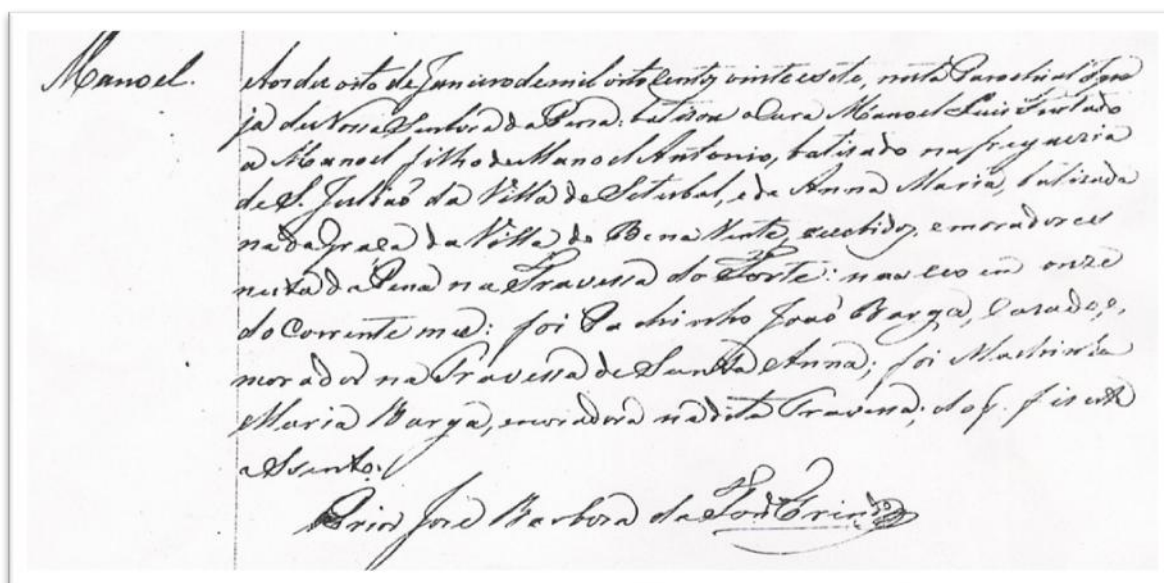 Manoel.
Aos dez oito de Janeiro de mil oito centos vinte e sete, nesta Parochial Igre
ja de Nossa Senhora da Pena: batizou o Cura Manoel Luis Furtado
a Manoel filho de Manoel Antonio, batizado na freguezia
de S. Julião da Villa de Setubal, e de Anna Maria, batizada
na da Graça da Villa de Bena Vente, recebidos, e moradores
nesta da Pena na Travessa do Forte: nasceo em onze
do corrente mes: foi Padrinho João Barga, Casado, e,
morador na Travessa de Santa Anna; foi Madrinha
Maria Barga, moradora na dita Travessa; do q. fis este
assento.
Prior José Barbosa da